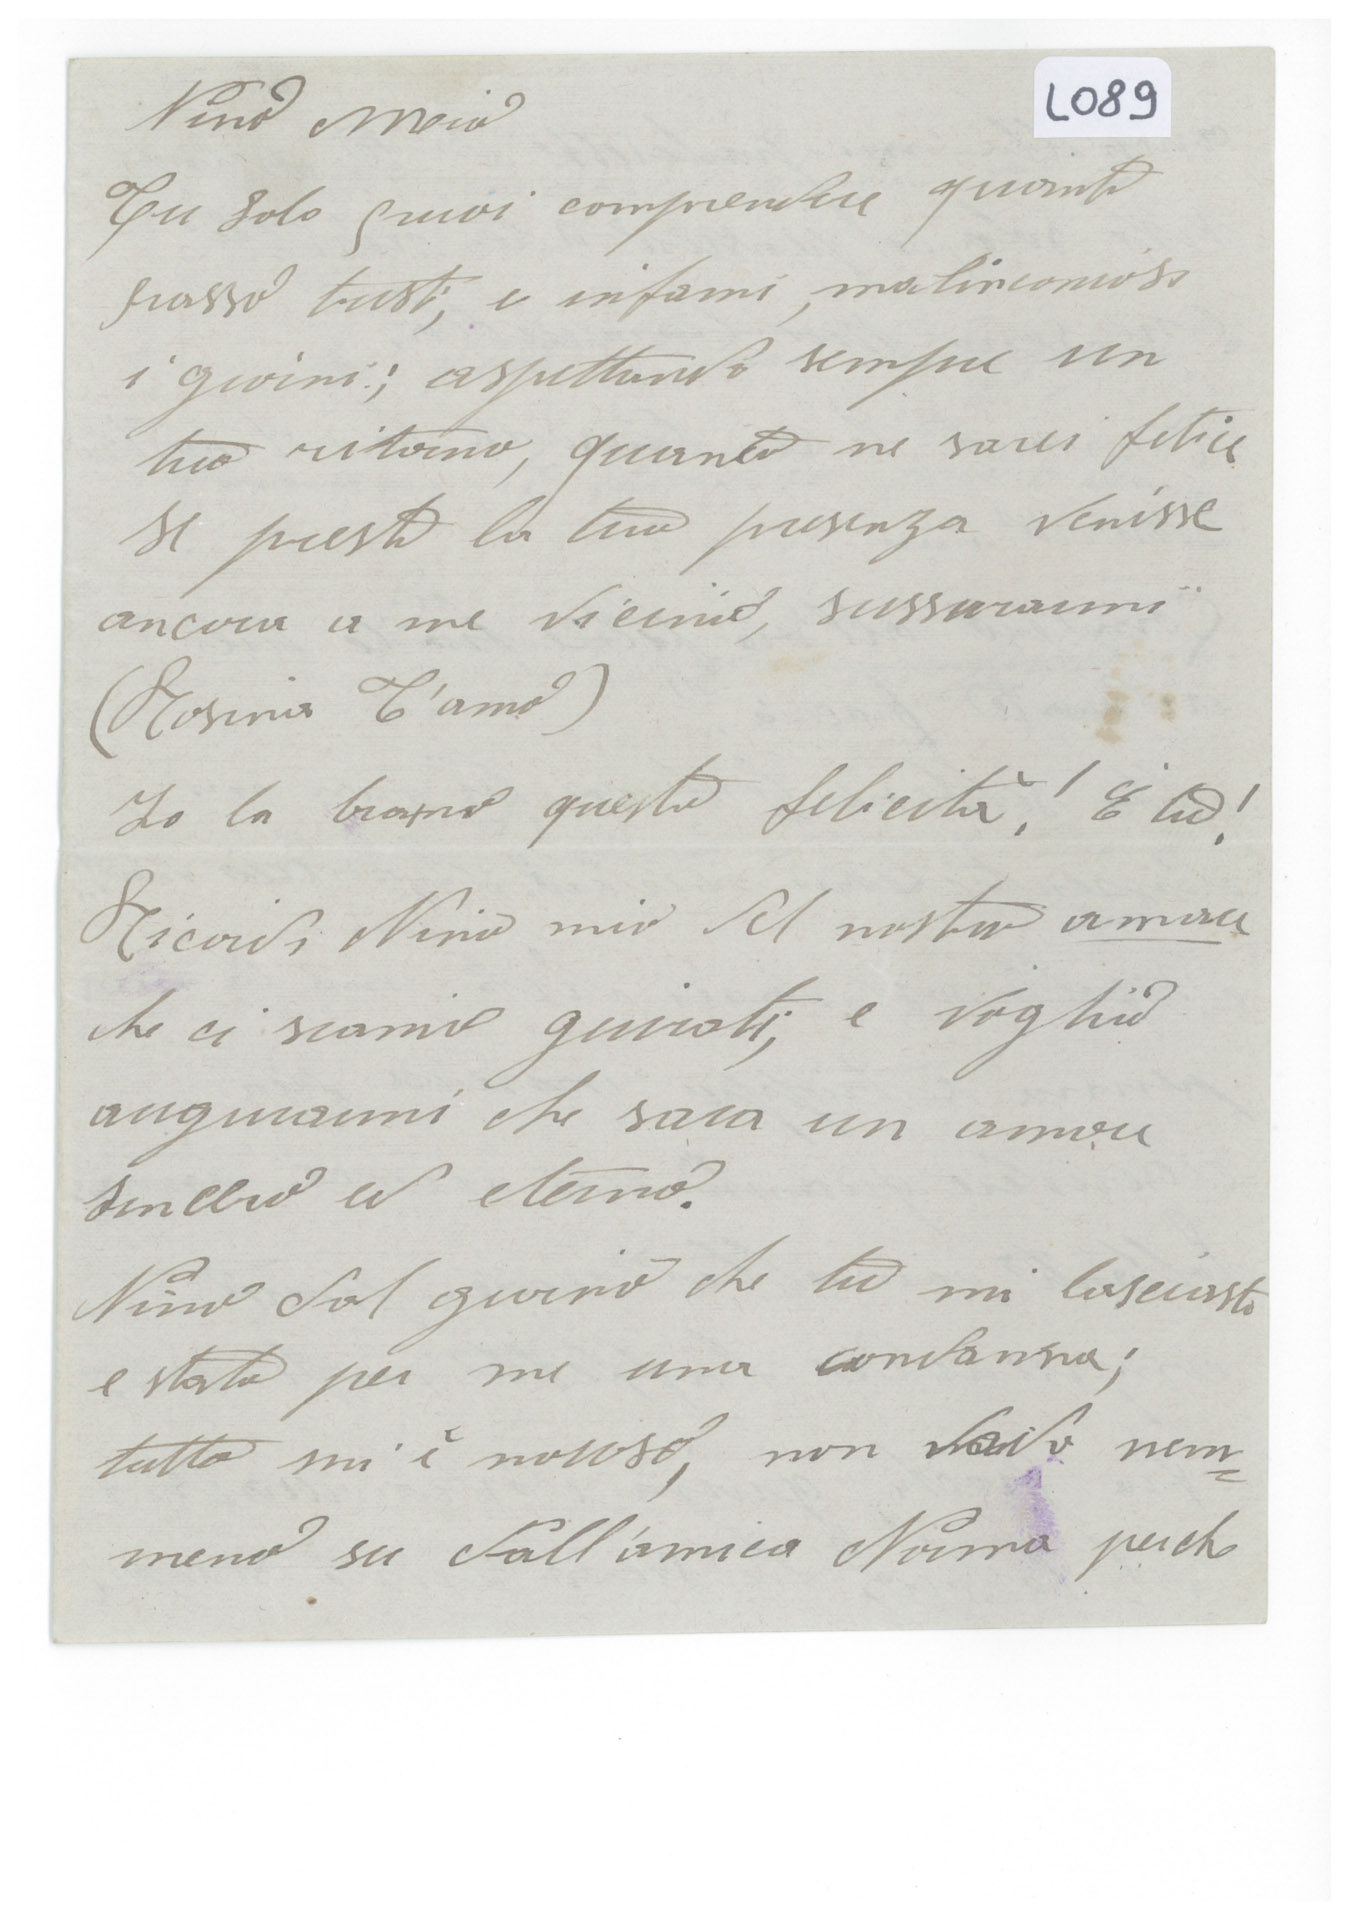 L089
Nino Moio
Tu solo puoi comprendere quanto
passo tristi, e infami, malinconiosi
i giorni; aspettando sempre un
tuo ritorno, quanto ne sarei felice
se presto la tua presenza venisse
ancora a me vicino, sussurarmi
(Rosina T'amo)
Io la bramo questa felicità! E tu!
Ricordi Nino mio del nostro amore
che ci siamo giurati; e voglio
augurarmi che sara un amore
sincero ed eterno.
Nino dal giorno che tu mi lasciasti
e stata per me una condanna;
tutto mi è noioso, non vado nem=
meno su dall'amica Norma perche